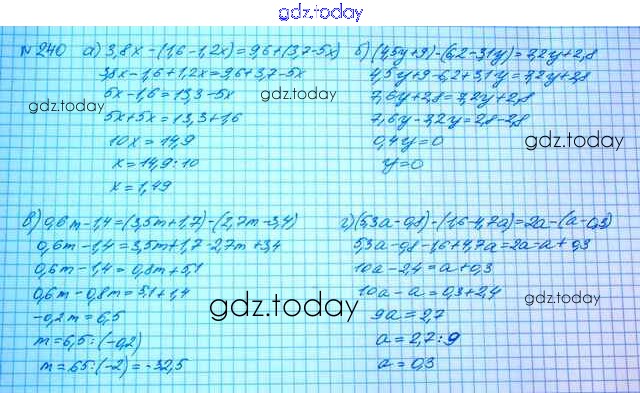 gdz.today
№240 а) 3,8x-(1,6-1,2x)=9,6+(3,7-5x)
3,8x-1,6+1,2x=9,6+3,7-5x
5x-1,6=13,3-5x
5x+5x=13,3+1,6
10x=14,9
x=14,9:10
x=1,49
б) (4,5y+9)-(6,2-3,1y)=7,2y+2,8
4,5y+9-6,2+3,1y=7,2y+2,8
7,6y+2,8=7,2y+2,8
7,6y-7,2y=2,8-2,8
0,4y=0
y=0
gdz.today
gdz.today
gdz.today
в) 0,6m-1,4=(3,5m+1,7)-(2,7m-3,4)
0,6m-1,4=3,5m+1,7-2,7m+3,4
0,6m-1,4=0,8m+5,1
0,6m-0,8m=5,1+1,4
-0,2m=6,5
m=6,5:(-0,2)
m=65:(-2)=-32,5
г) (5,3a-0,8)-(1,6-4,7a)=2a-(a-0,3)
5,3a-0,8-1,6+4,7a=2a-a+0,3
10a-2,4=a+0,3
10a-a=0,3+2,4
9a=2,7
a=2,7:9
a=0,3
gdz.today
gdz.today